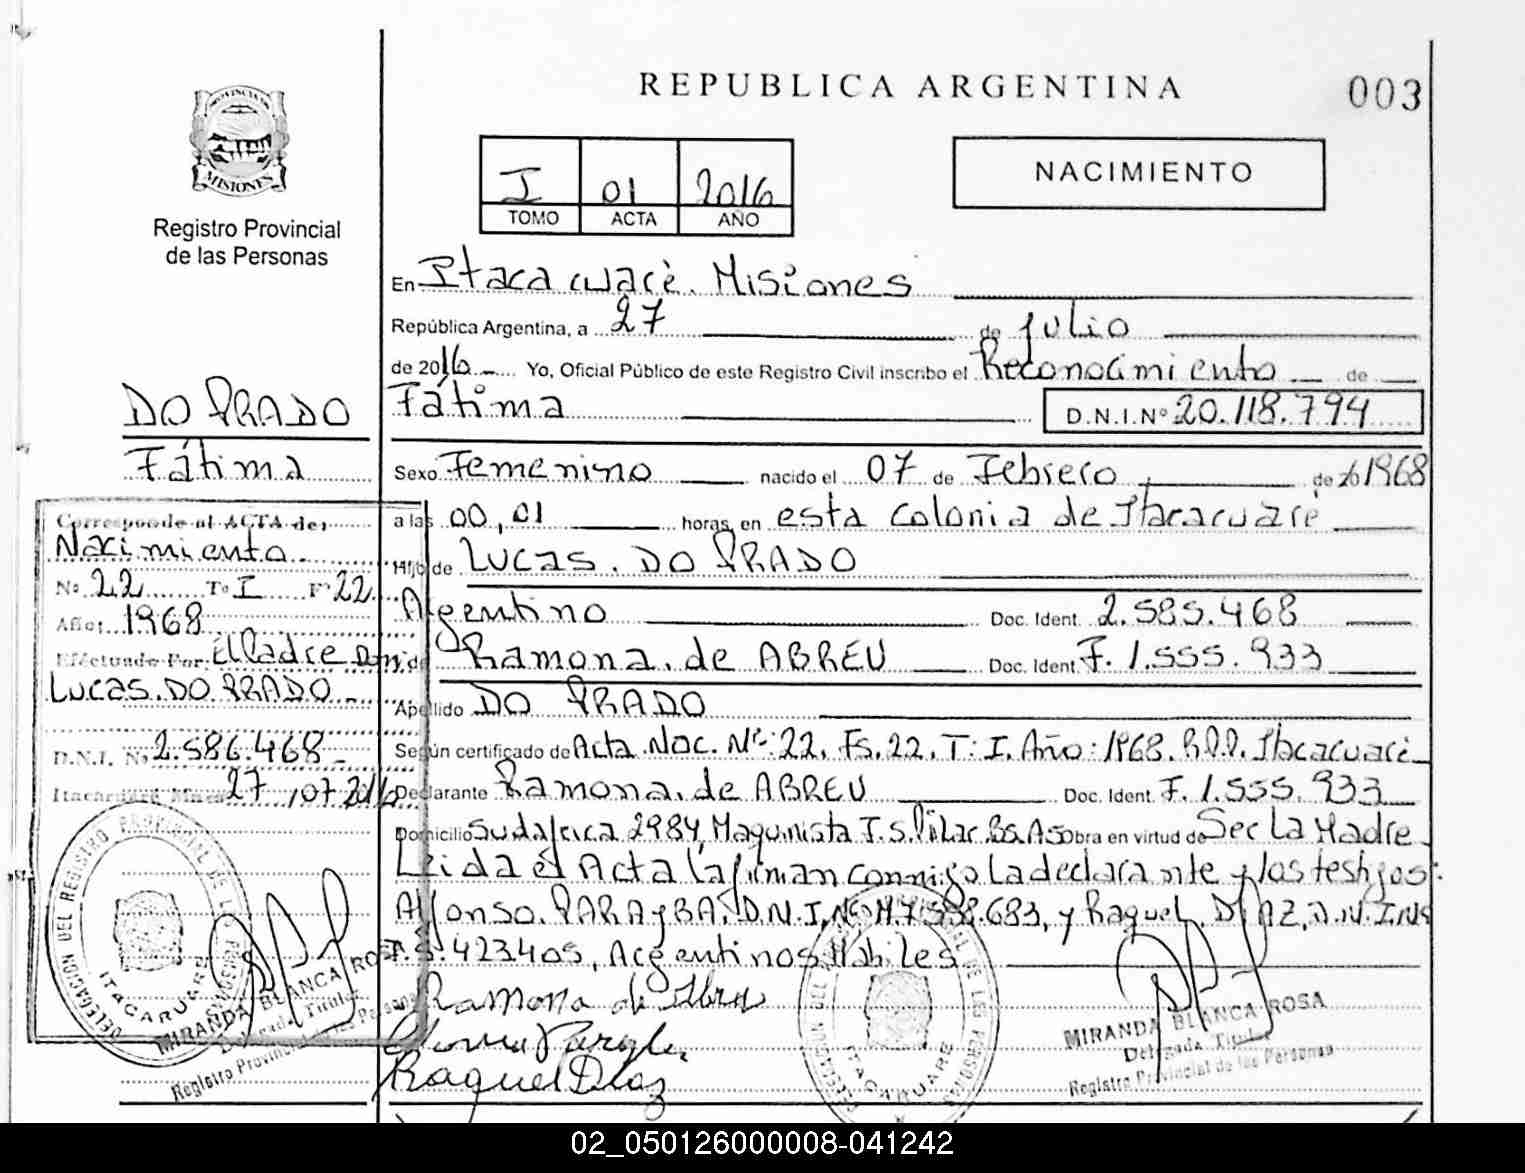 REPUBLICA ARGENTINA
003
PROVINCIA DE
MISIONES
Registro Provincial
de las Personas
I 01 2016
TOMO ACTA AÑO
NACIMIENTO
En Itacaruaré. Misiones
República Argentina, a 27 de Julio
de 2016 Yo, Oficial Público de este Registro Civil inscribo el Reconocimiento de
DO PRADO
Fátima
Fátima D.N.I.Nº 20.118.794
Sexo Femenino nacido el 07 de Febrero de 1968
a las 00,01 horas, en esta Colonia de Itacaruaré
Hijo de LUCAS. DO PRADO
Argentino Doc. Ident. 2.585.468
y de Ramona. de ABREU Doc. Ident. F. 1.555.933
Apellido DO PRADO
Según certificado de Acta Nac. Nº: 22. Fs. 22. T: I. Año: 1968. R.P.P. Itacaruaré
Declarante Ramona. de ABREU Doc. Ident. F. 1.555.933
Domicilio Sudafrica 2984, Maquinista F. S. Pilar. Bs. As Obra en virtud de Ser La Madre
Leida el Acta la firman conmigo La declarante y los testigos:
Alfonso. D.N.I. Nº M. 683, y Raquel. DIAZ, D.N.I. Nº
423405, Argentinos Habiles
Corresponde al ACTA de:
Nacimiento
Nº 22 Tº I Fº 22
Año: 1968
Efectuado Por: El Padre Dn.
LUCAS. DO PRADO
D.N.I. Nº 2.586.468
27 , 07 2016
DELEGACION DEL REGISTRO PROVINCIAL DE LAS PERSONAS
ITACARUARE
MIRANDA BLANCA ROSA
Delegada Titular
Registro Provincial de las Personas
Ramona de Abreu
Raquel Diaz
DELEGACION DEL DE LAS PERSONAS
ITACARUARE
MIRANDA BLANCA ROSA
Delegada Titular
Registro Provincial de las Personas
02_050126000008-041242